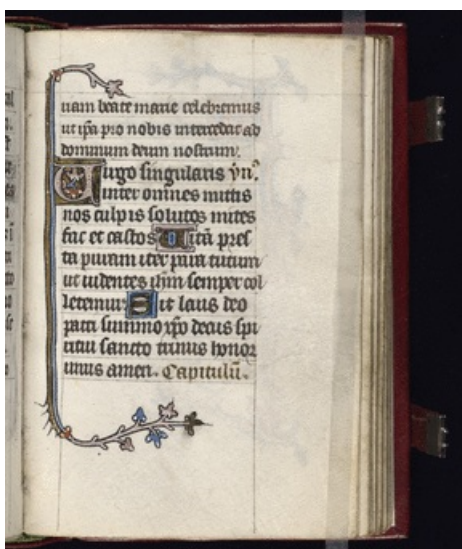 uiam beate marie celebremus
ut ip̄a pro nobis intercedat ad
dominum deum nostrum.
Uirgo singularis yn̄s.
inter omnes mittis
nos culpis solutos mites
fac et castos Uitā pres
ta puram iter para tutum
ut uidentes ih̄m semper col
letemur. Sit laus deo
patri summo xp̄o decus spi
ritui sancto trinus honor
unus amen. Capitulū.